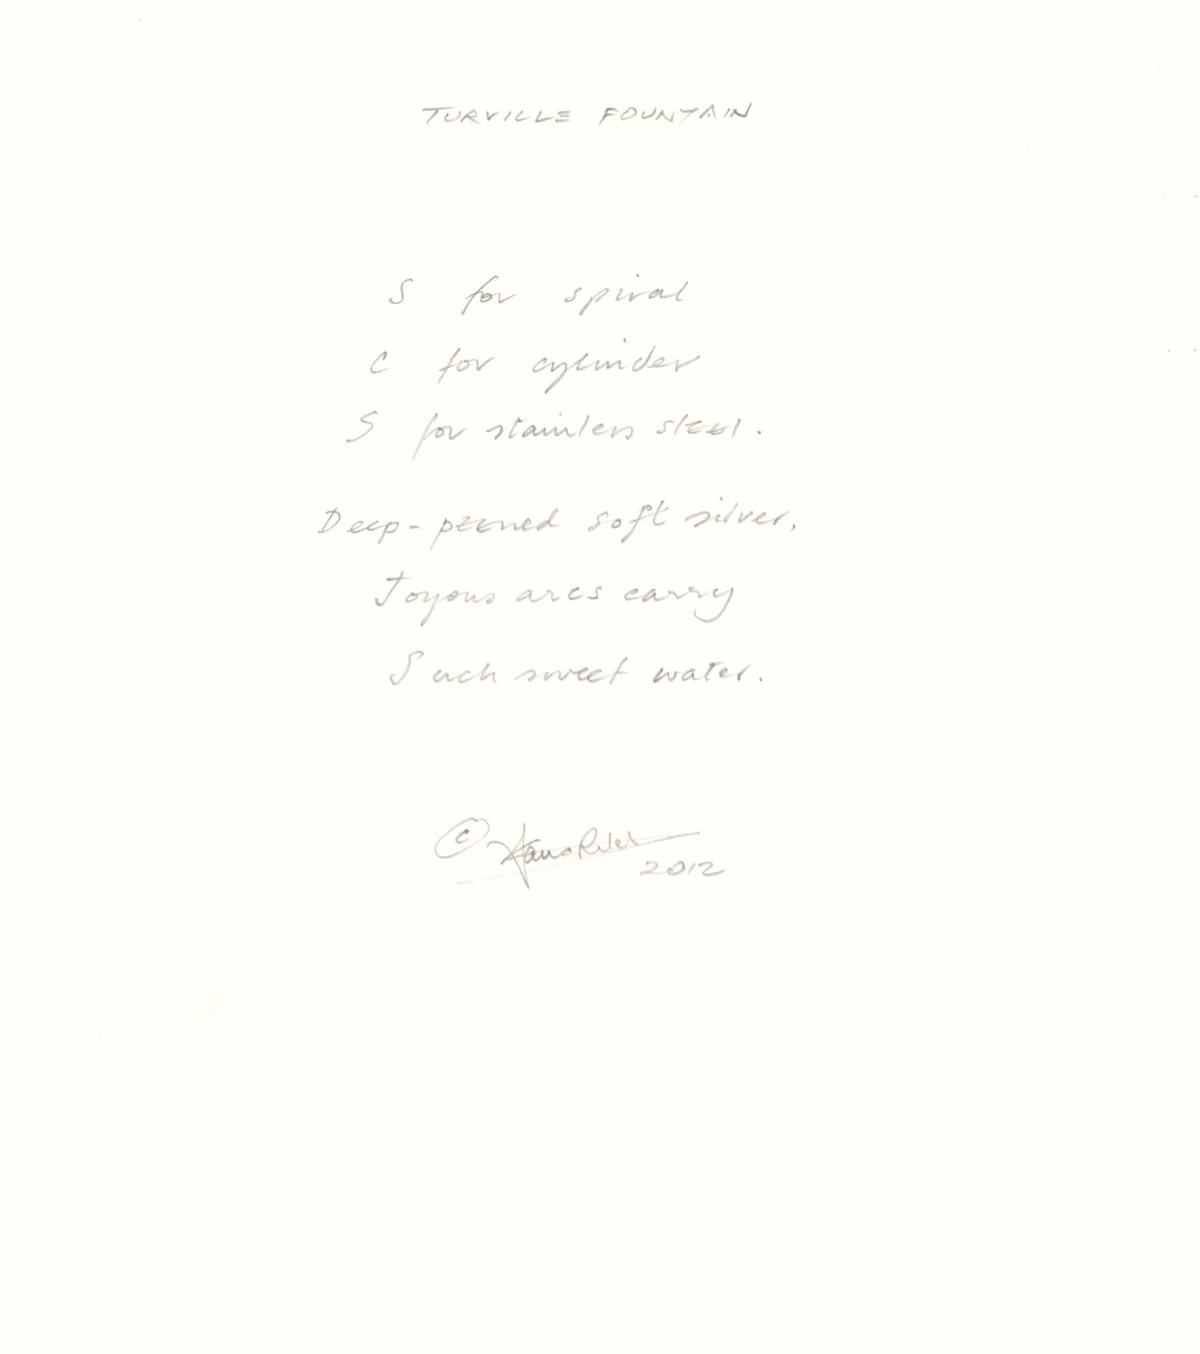 TURVILLE FOUNTAIN
S for spiral
C for cylinder
S for stainless steel.
Deep-peened soft silver,
Joyous arcs carry
Such sweet water.
©
2012